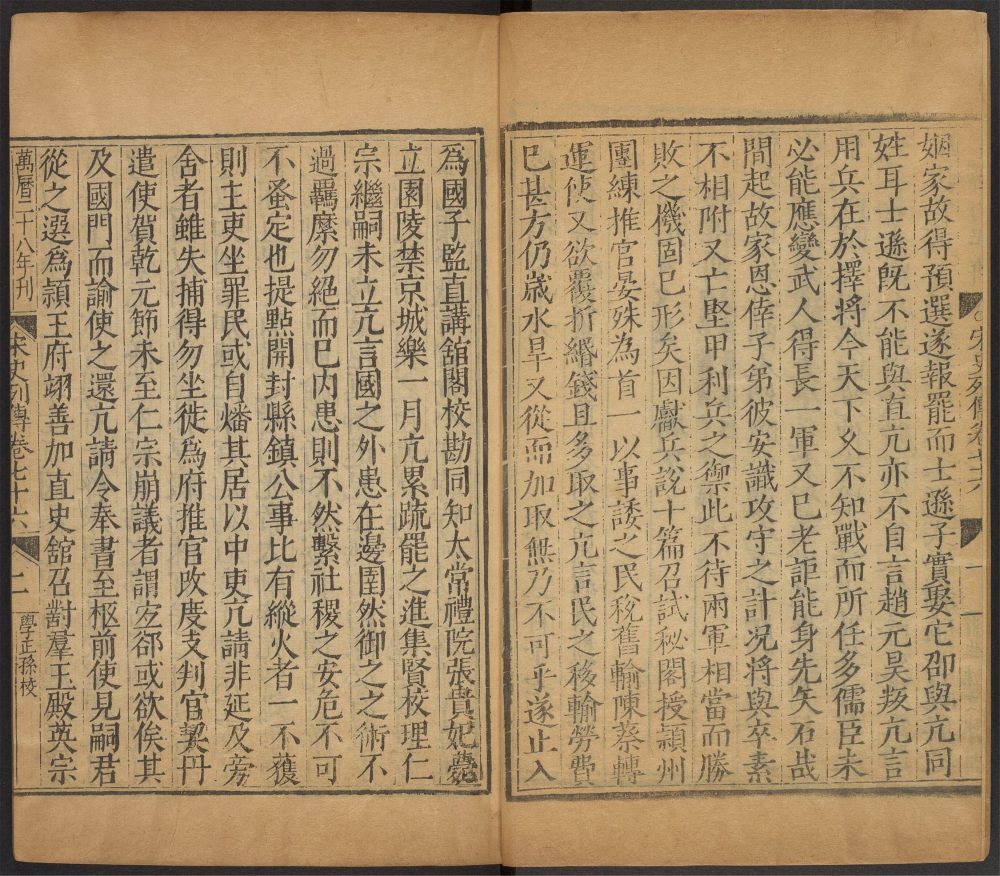 姻家故得預選遂報罷而士遜子實娶它邵與亢同
姓耳士遜旣不能與直亢亦不自言趙元昊叛亢言
用兵在於擇將今天下久不知戰而所任多儒臣未
必能應變武人得長一軍又巳老詎能身先矢石哉
間起故家恩倖子弟彼安識攻守之計况將與卒素
不相附又亡堅甲利兵之禦此不待兩軍相當而勝
敗之機固巳形矣因獻兵說十篇召試秘閣授潁州
團練推官晏殊為首一以事諉之民稅舊輸陳蔡轉
運使又欲覆折緡錢且多取之亢言民之移輸勞費
巳甚方仍歲水旱又從而加取無乃不可乎遂止入
宋史列傳卷七十六
一
為國子監直講舘閣校勘同知太常禮院張貴妃薨
立園陵禁京城樂一月亢累疏罷之進集賢校理仁
宗繼嗣未立亢言國之外患在邊圉然御之之術不
過羈縻勿絕而巳内患則不然繫社稷之安危不可
不蚤定也提點開封縣鎮公事比有縱火者一不獲
則主吏坐罪民或自燔其居以中吏亢請非延及旁
舍者雖失捕得勿坐徙爲府推官攺度支判官契丹
遣使賀乾元節未至仁宗崩議者謂宐郤或欲俟其
及國門而諭使之還亢請令奉書至柩前使見嗣君
從之選爲潁王府翊善加直史舘召對羣玉殿英宗
萬曆二十八年刊
宋史列傳卷七十六
二
學正孫校